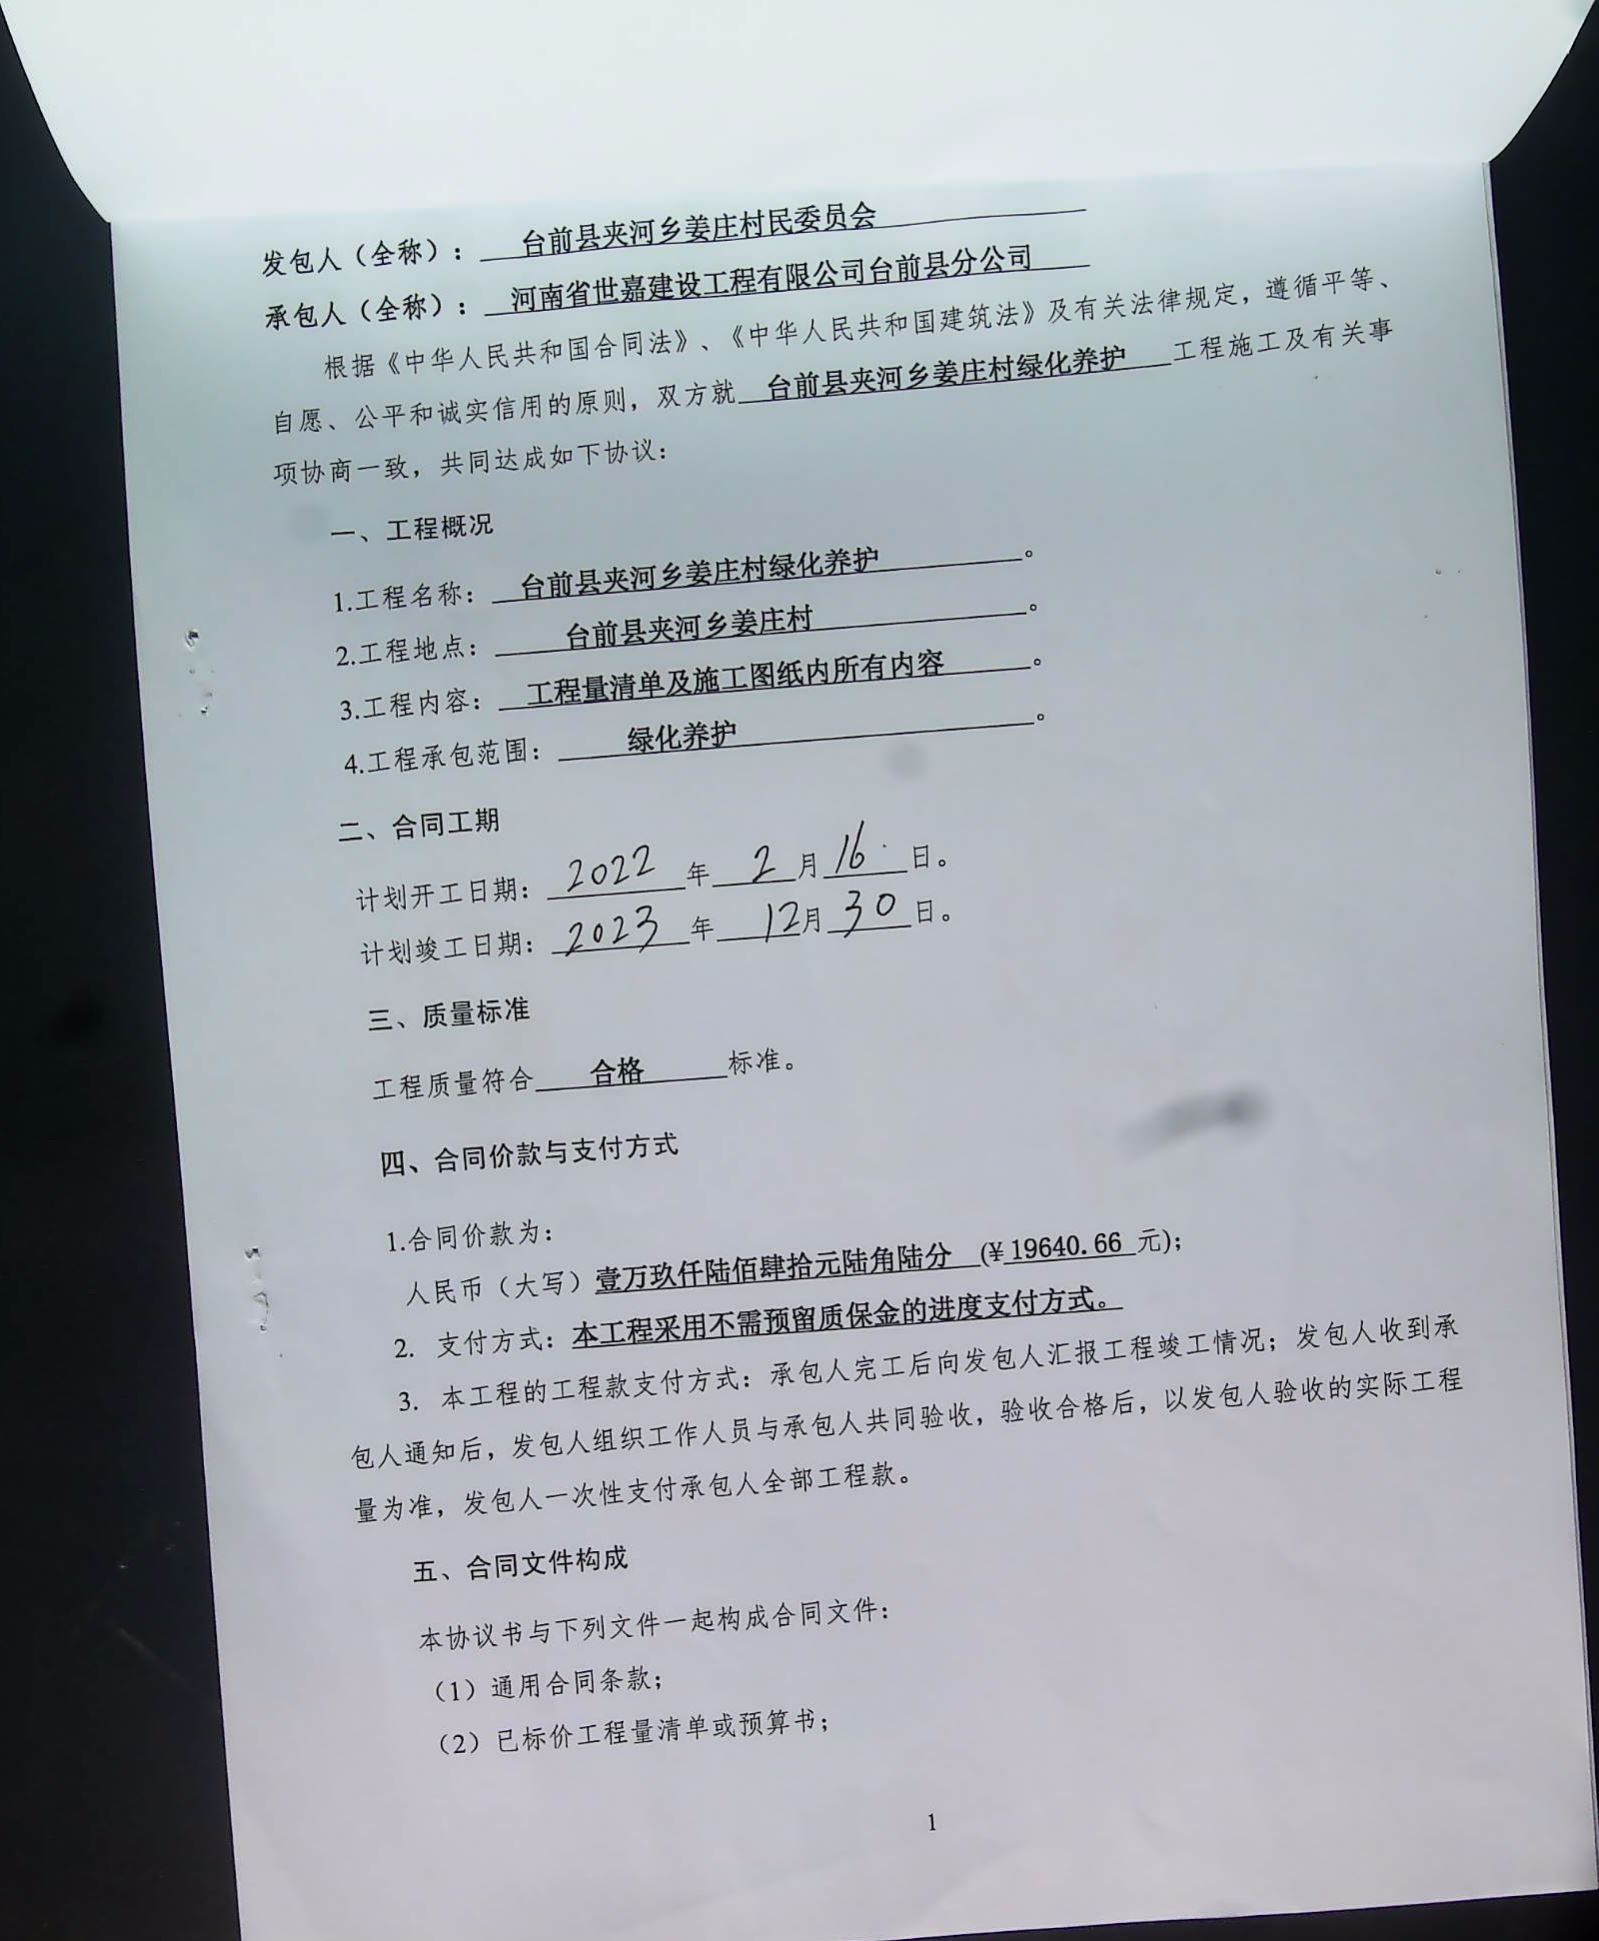 发包人（全称）：台前县夹河乡姜庄村民委员会
承包人（全称）：河南省世嘉建设工程有限公司台前县分公司
根据《中华人民共和国合同法》、《中华人民共和国建筑法》及有关法律规定，遵循平等、
自愿、公平和诚实信用的原则，双方就台前县夹河乡姜庄村绿化养护工程施工及有关事
项协商一致，共同达成如下协议：
一、工程概况
1.工程名称：台前县夹河乡姜庄村绿化养护。
2.工程地点：台前县夹河乡姜庄村。
3.工程内容：工程量清单及施工图纸内所有内容。
4.工程承包范围：绿化养护。
二、合同工期
计划开工日期：2022年2月16日。
计划竣工日期：2023年12月30日。
三、质量标准
工程质量符合合格标准。
四、合同价款与支付方式
1.合同价款为：
人民币（大写）壹万玖仟陆佰肆拾元陆角陆分 (¥19640.66元)；
2. 支付方式：本工程采用不需预留质保金的进度支付方式。
3. 本工程的工程款支付方式：承包人完工后向发包人汇报工程竣工情况；发包人收到承
包人通知后，发包人组织工作人员与承包人共同验收，验收合格后，以发包人验收的实际工程
量为准，发包人一次性支付承包人全部工程款。
五、合同文件构成
本协议书与下列文件一起构成合同文件：
（1）通用合同条款；
（2）已标价工程量清单或预算书；
1